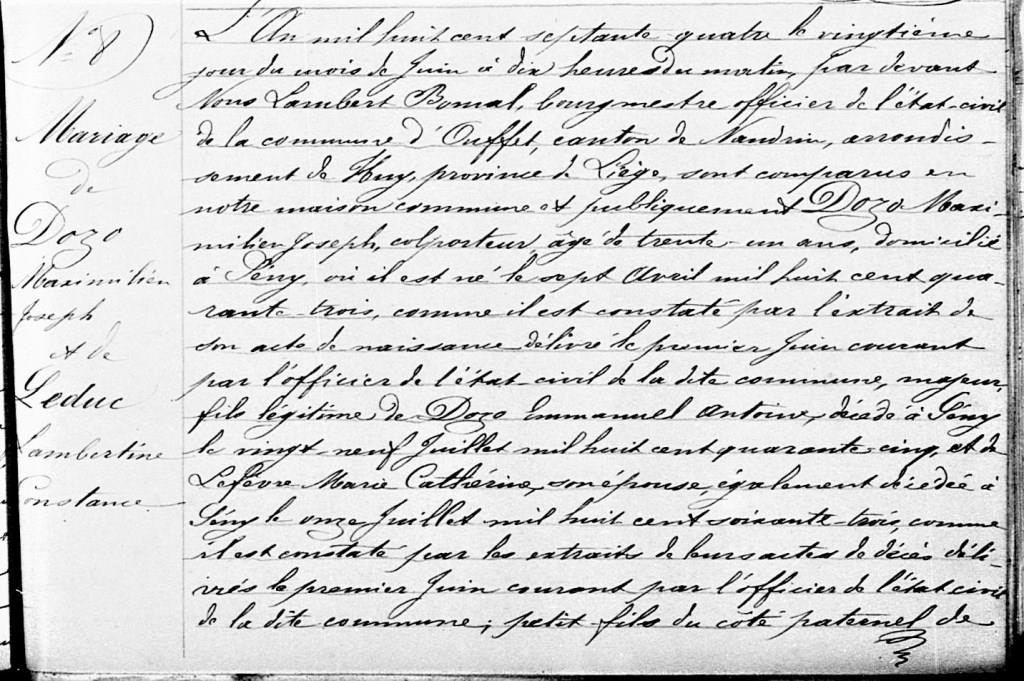 N° 8
Mariage
de
Dozo
Maximilien
Joseph
et de
Leduc
Lambertine
Constance
L'An mil huit cent septante quatre le vingtième
jour du mois de Juin à dix heures du matin, par devant
Nous Lambert Bomal, bourgmestre officier de l'état-civil
de la commune d'Ouffet, canton de Nandrin, arrondis-
sement de Huy, province de Liège, sont comparus en
notre maison commune et publiquement Dozo Maxi-
milien Joseph, colporteur, âgé de trente-un ans, domicilié
à Seny, où il est né le sept Avril mil huit cent qua-
rante-trois, comme il est constaté par l'extrait de
son acte de naissance délivré le premier Juin courant
par l'officier de l'état-civil de la dite commune, majeur,
fils légitime de Dozo Emmanuel Antoine, décédé à Sény
le vingt-neuf Juillet mil huit cent quarante-cinq, et de
Lefèvre Marie Cathérine, son épouse, également décédée à
Sény le onze Juillet mil huit cent soixante-trois, comme
il est constaté par les extraits de leurs actes de décès déli-
vrés le premier Juin courant par l'officier de l'état civil
de la dite commune; petit-fils du coté paternel de